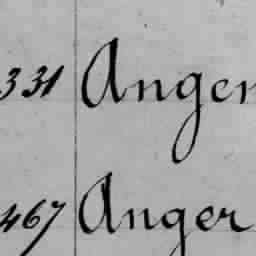 331 Anger
467 Anger